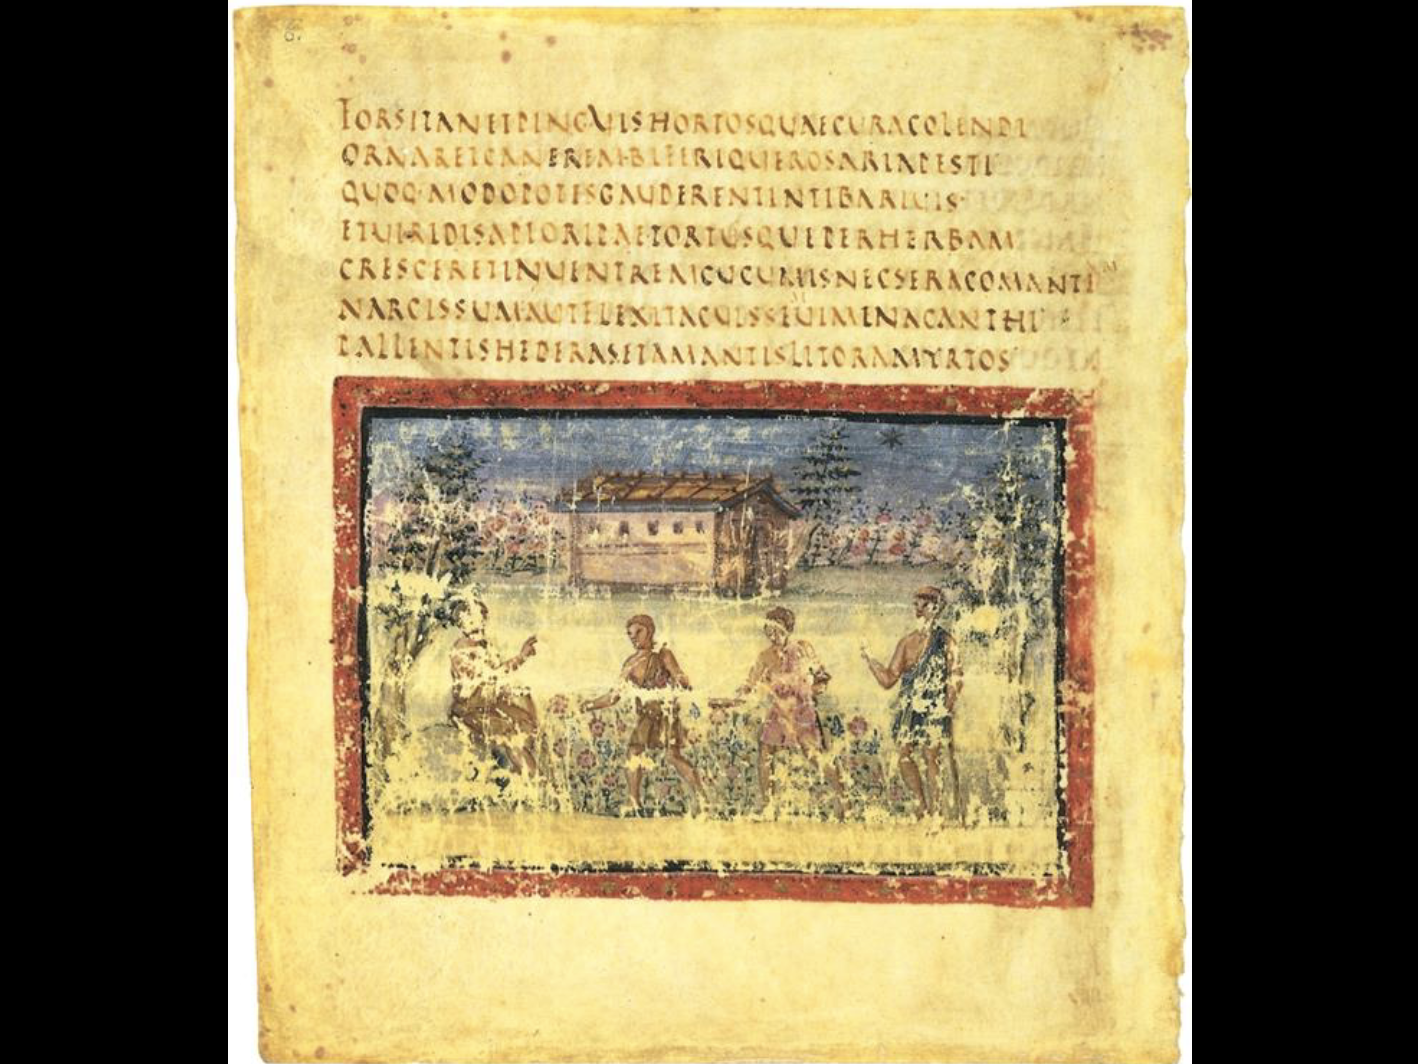 6.
FORSITANETPINGVISHORTOSQUAECURACOLENDI
ORNARETCANEREMBIFERIQUEROSARIAPESTI
QUOQ·MODOPOTISGAUDERENTINTIBARIUIS
ETUIRIDISAPIORIPAETORTUSQUEPERHERBAM
CRESCERETINUENTREMCUCUMISNECSERACOMANTE
NARCISSUMAUTFLEXITACUISSEUIMENACANTHI
PALLENTISHEDERASETAMANTISLITORAMYRTOS